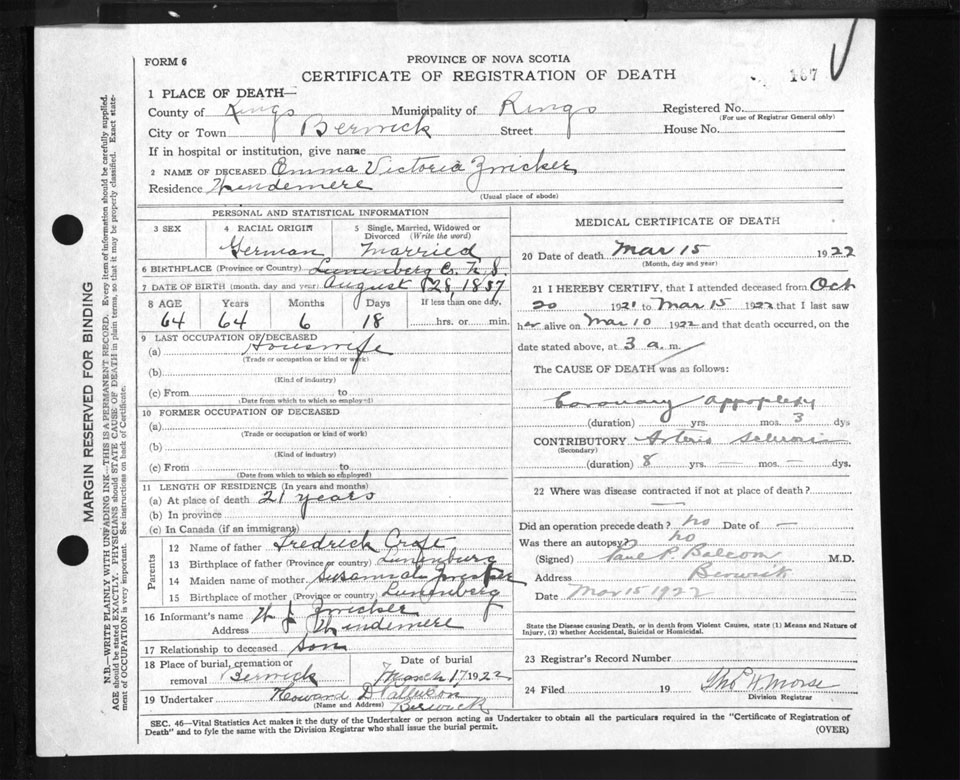 FORM 6
PROVINCE OF NOVA SCOTIA
CERTIFICATE OF REGISTRATION OF DEATH
167
1 PLACE OF DEATH—
County of Kings Municipality of Kings Registered No.
(For use of Registrar General only)
City or Town Berwick Street House No.
If in hospital or institution, give name
2 NAME OF DECEASED Emma Victoria Zwicker
Residence Windemere
(Usual place of abode)
PERSONAL AND STATISTICAL INFORMATION
3 SEX 4 RACIAL ORIGIN 5 Single, Married, Widowed or Divorced (Write the word)
German Married
6 BIRTHPLACE (Province or Country) Lunenberg Co. N.S.
7 DATE OF BIRTH (month, day and year) August 28, 1857
8 AGE Years Months Days If less than one day,
64 64 6 18 hrs. or min.
9 LAST OCCUPATION OF DECEASED
(a) Housewife
(Trade or occupation or kind or work)
(b)
(Kind of industry)
(c) From to
(Date from which to which so employed)
10 FORMER OCCUPATION OF DECEASED
(a)
(Trade or occupation or kind of work)
(b)
(Kind of industry)
(c) From to
(Date from which to which so employed)
11 LENGTH OF RESIDENCE (In years and months)
(a) At place of death 21 years
(b) In province
(c) In Canada (if an immigrant)
Parents
12 Name of father Fredrick Croft
13 Birthplace of father (Province or country) Lunenburg
14 Maiden name of mother Susannah
15 Birthplace of mother (Province or country) Lunenberg
16 Informant's name W J Zwicker
Address Windemere
17 Relationship to deceased Son
18 Place of burial, cremation or removal Berwick
Date of burial March 17 1922
19 Undertaker Howard D
(Name and Address) Berwick
MEDICAL CERTIFICATE OF DEATH
20 Date of death Mar 15 1922
(Month, day and year)
21 I HEREBY CERTIFY, that I attended deceased from Oct
20 1921 to Mar 15 1922 that I last saw
her alive on Mar 10 1922 and that death occurred, on
date stated above, at 3 a. m.
The CAUSE OF DEATH was as follows:
Coronary Appoplexy
(duration) yrs. mos. 3 dys
CONTRIBUTORY Arterio Sclerosis
(Secondary)
(duration) 8 yrs. — mos. — dys.
22 Where was disease contracted if not at place of death?
—
Did an operation precede death? no Date of —
Was there an autopsy? no
(Signed) Paul R. Balcom M.D.
Address Berwick
Date Mar 15 1922
State the Disease causing Death, or in death from Violent Causes, state (1) Means and Nature of
Injury, (2) whether Accidental, Suicidal or Homicidal.
23 Registrar's Record Number
24 Filed 19 Thos W Morse
Division Registrar
SEC. 46—Vital Statistics Act makes it the duty of the Undertaker or person acting as Undertaker to obtain all the particulars required in the "Certificate of Registration of
Death" and to fyle the same with the Division Registrar who shall issue the burial permit.
(OVER)
MARGIN RESERVED FOR BINDING
N.B.—WRITE PLAINLY WITH UNFADING INK—THIS IS A PERMANENT RECORD. Every item of information should be carefully supplied.
AGE should be stated EXACTLY. PHYSICIANS should STATE CAUSE OF DEATH in plain terms, so that it may be properly classified. Exact state-
ment of OCCUPATION is very important. See instructions on back of Certificate.